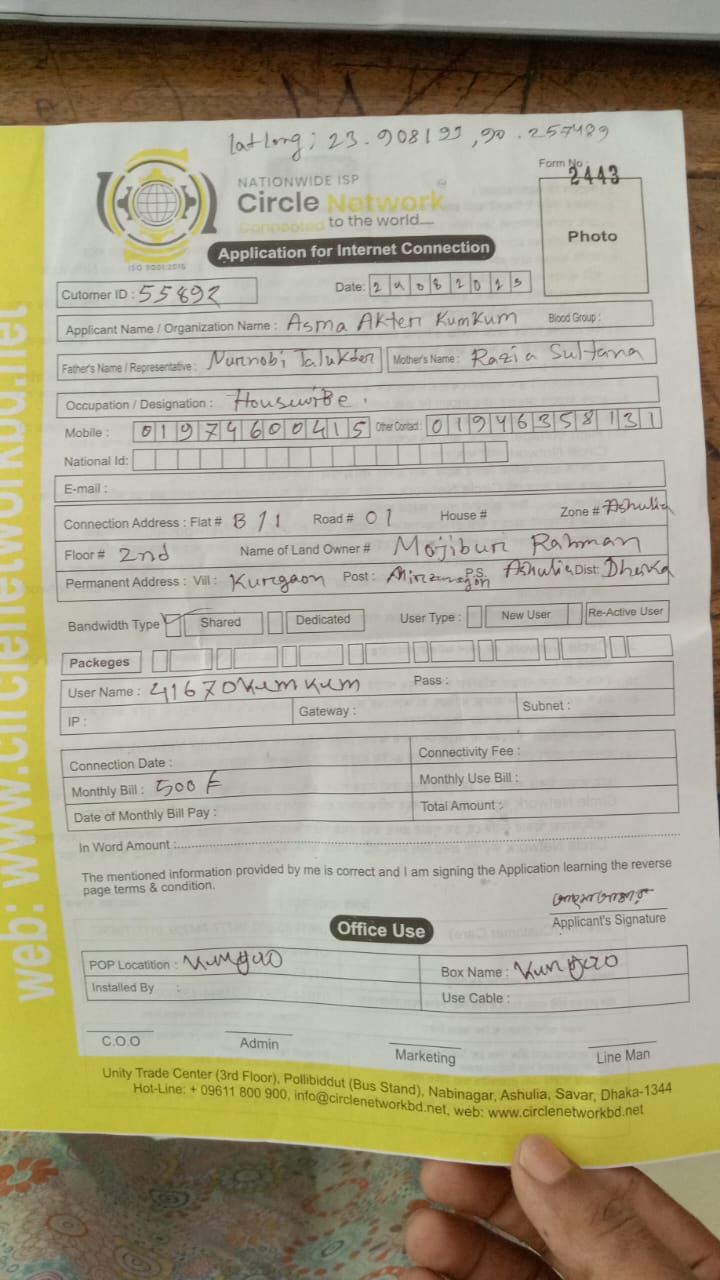 latlong; 23.908193, 90.257489
Form No : 2443
NATIONWIDE ISP
Circle Network
Connected to the world....
ISO 9001:2015
Application for Internet Connection
Photo
Cutomer ID : 55892
Date:
Applicant Name / Organization Name : Asma Akter Kumkum Blood Group :
Father's Name / Representative : Nurnobi Talukder Mother's Name : Razia Sultana
Occupation / Designation : Housewife
Mobile : 01974600415 Other Contact : 01946358131
National Id:
E-mail :
Connection Address : Flat # B/1 Road # 01 House # Zone # Ashulia
Floor # 2nd Name of Land Owner # Mojibur Rahman
Permanent Address : Vill : Kurgaon Post : P.S. Ashulia Dist: Dhaka
Bandwidth Type Shared Dedicated User Type : New User Re-Active User
Packeges
User Name : 41670kumkum Pass :
IP : Gateway : Subnet :
Connection Date : Connectivity Fee :
Monthly Bill : 500 Monthly Use Bill :
Date of Monthly Bill Pay : Total Amount :
In Word Amount :
The mentioned information provided by me is correct and I am signing the Application learning the reverse
page terms & condition.
Applicant's Signature
Office Use
POP Locatition : Kurgao Box Name : Kurgao
Installed By : Use Cable :
C.O.O Admin Marketing Line Man
Unity Trade Center (3rd Floor), Pollibiddut (Bus Stand), Nabinagar, Ashulia, Savar, Dhaka-1344
Hot-Line: + 09611 800 900, info@circlenetworkbd.net, web: www.circlenetworkbd.net
web: www.circlenetworkbd.net